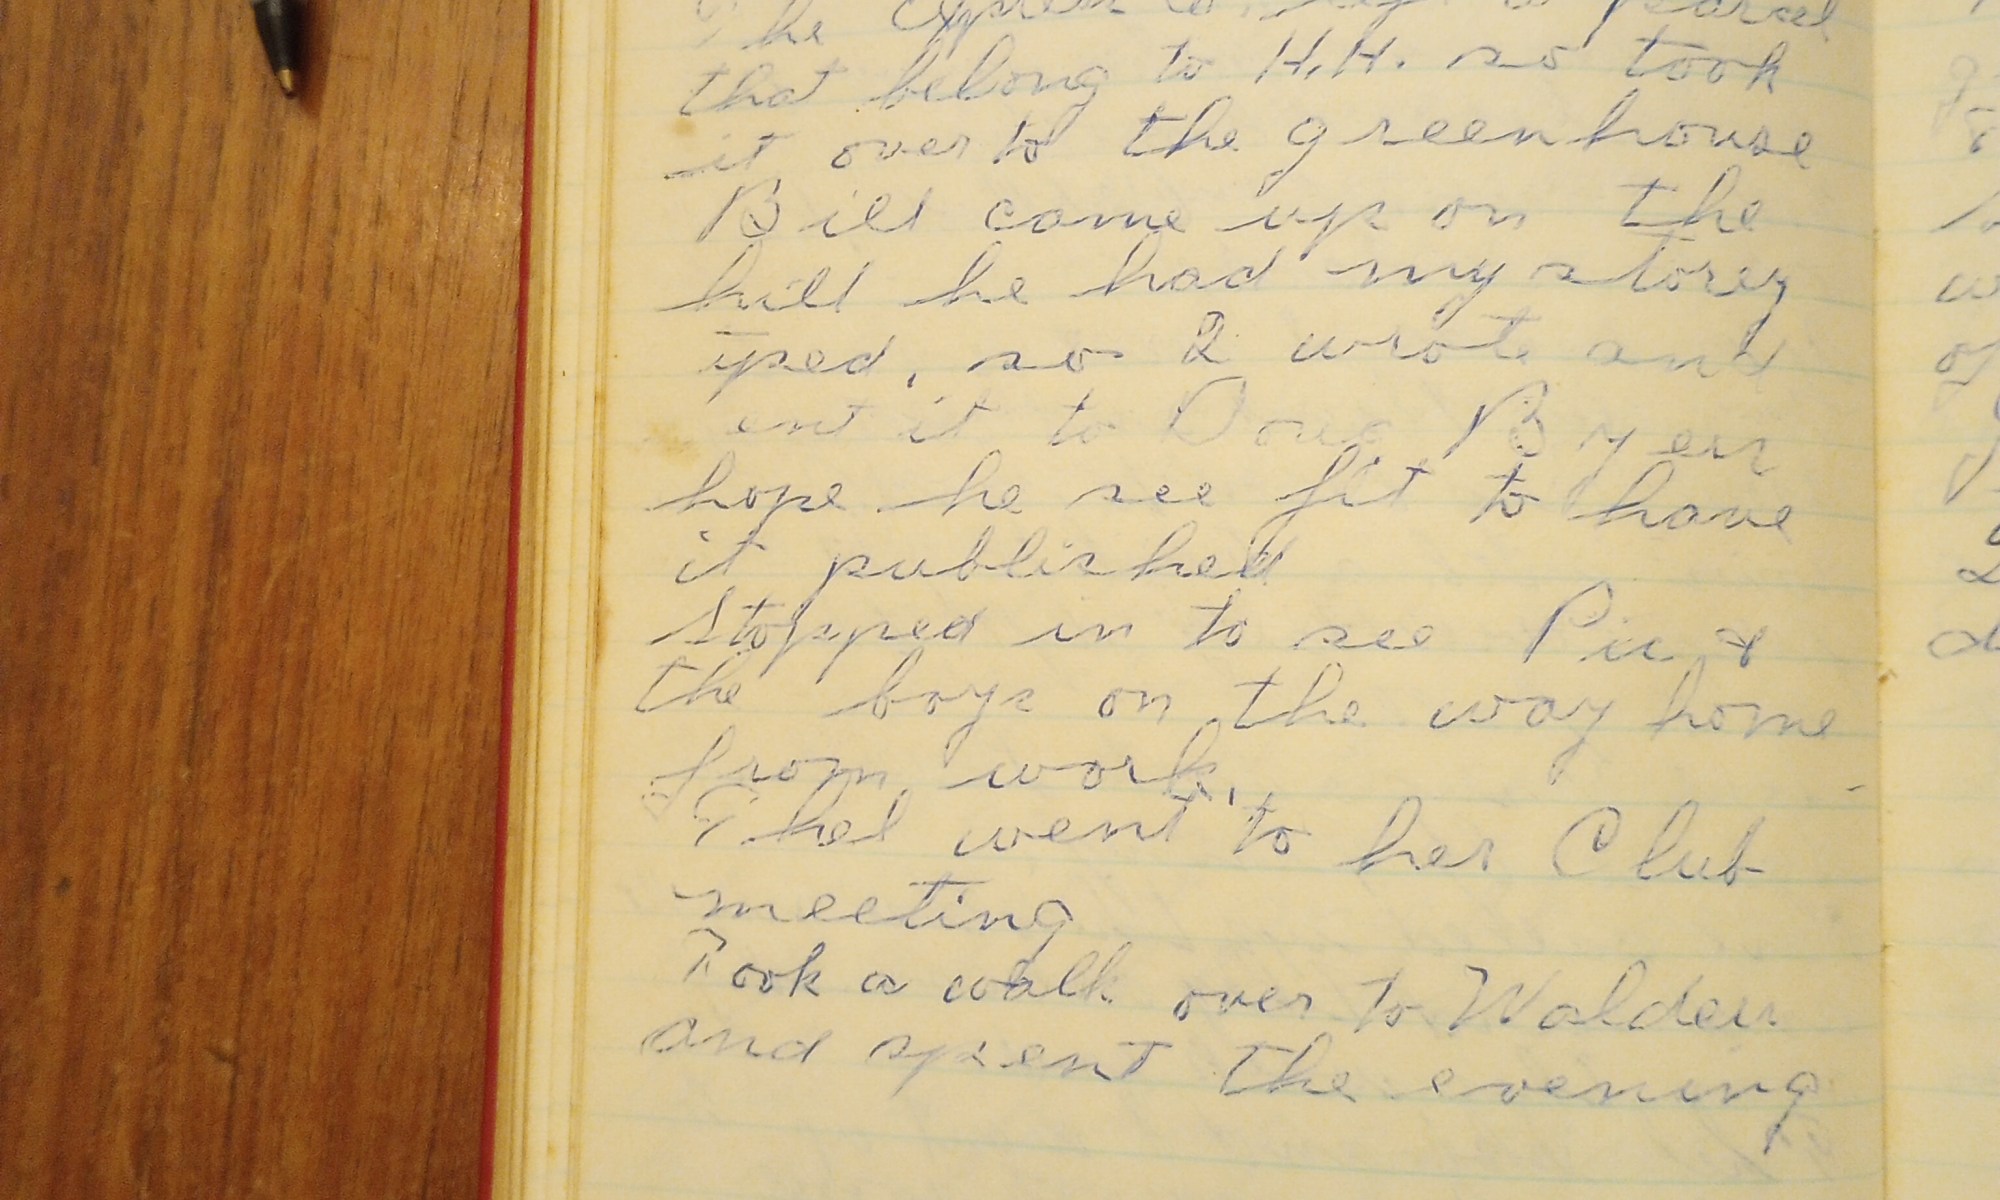 The Express Co. left a parcel
that belong to H.H. so took
it over to the greenhouse
Bill came up on the
hill he had my storey
yped, so I wrote and
ent it to Doug Byers
hope he see fit to have
it published
Stopped in to see Pic &
the boys on the way home
from work.
Thel went to her Club
meeting
Took a walk over to Walden
and spent the evening